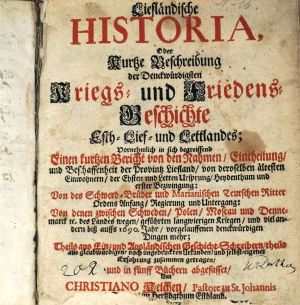 Liefländische
HISTORIA,
Oder
Kurtze Beschreibung
der Denckwürdigsten
Kriegs- und Friedens-
Geschichte
Esth- Lief- und Lettlandes;
Vornehmlich in sich begreiffend
Einen kurtzen Bericht von den Nahmen, Eintheilung/
und Beschaffenheit der Provintz Liefland/ von derselben ältesten
Einwohnern/ der Ehsten und Letten Ursprung/ Heydenthum und
erster Bezwingung:
Von des Schwerd-Brüder und Marianischen Teutschen Ritter
Ordens Anfang/ Regierung und Untergang:
Von denen zwischen Schweden/ Polen/ Moscau und Denne-
marck wegen/ geführten langwierigen Kriegen/ und viel an-
dern biß auffs 1690. Jahr/ vorgelauffenen denckwürdigen
Dingen mehr;
Theils aus Ein- und Ausländischen Geschicht-Schreibern/ theils
aus glaubwürdigen/ noch ungedruckten Uhrkunden/ und selbsteigener
Erfahrung zusammen getragen/
und in fünff Büchern abgefasset/
Von
CHRISTIANO Kelchen/ Pastore zu St. Johannis
im Hertzogthum Esthland.